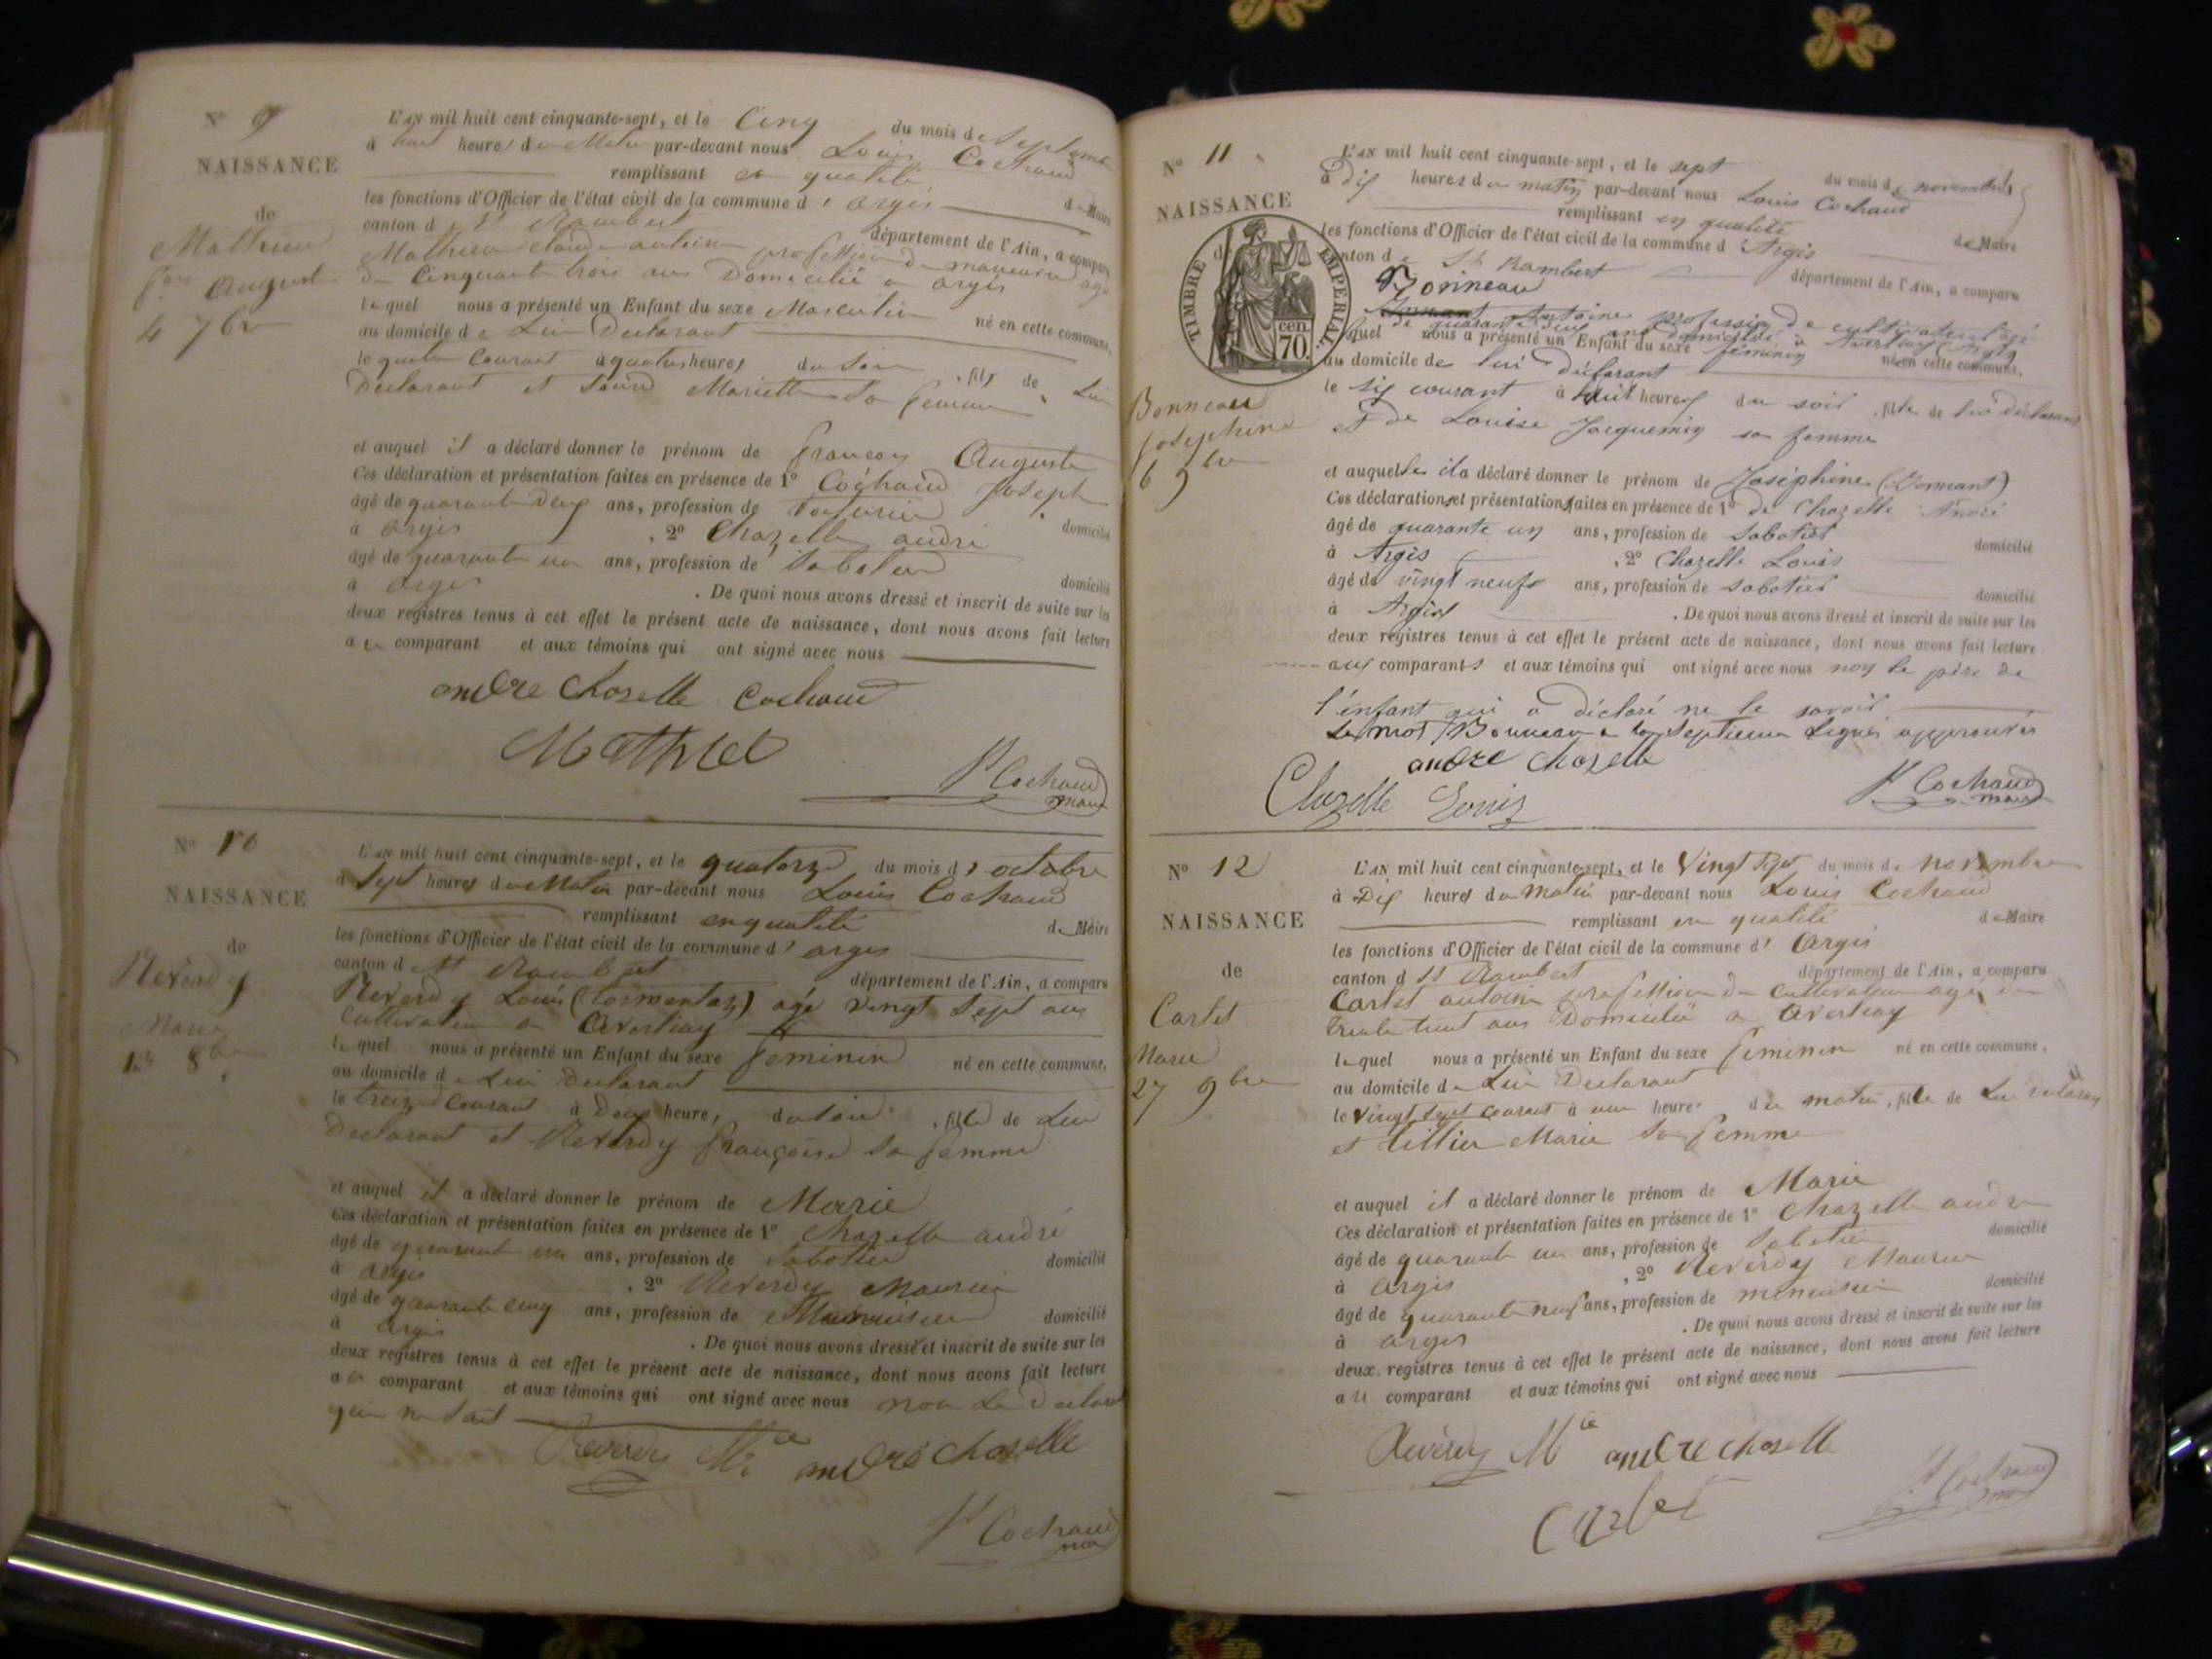 N° 9
NAISSANCE
de
Mathieu
fçois August
4 7bre
L'AN mil huit cent cinquante-sept, et le Cinq du mois de Septembre
à huit heures du Matin par-devant nous Louis Cochaud
remplissant en qualité de Maire
les fonctions d'Officier de l'état civil de la commune d'argis
canton de St Rambert département de l'Ain, a comparu
Mathieu Claude antoine profession de manoeuvre agé
de Cinquante trois ans Domicilié a argis
lequel nous a présenté un Enfant du sexe Masculin né en cette commune,
au domicile de Lui Declarant
le quatre Courant à quatre heures du Soir, fils de Lui
Declarant et Mariette Sa femme
et auquel il a déclaré donner le prénom de françois Auguste
Ces déclaration et présentation faites en présence de 1° Cochaud Joseph
âgé de quarante Deux ans, profession de domicilié
à argis, 2° Chazelle andré
âgé de quarante un ans, profession de Sabotier domicilié
à argis. De quoi nous avons dressé et inscrit de suite sur les
deux registres tenus à cet effet le présent acte de naissance, dont nous avons fait lecture
au comparant et aux témoins qui ont signé avec nous
andre Chazelle Cochaud
Mathieu
L Cochaud
maire
N° 10
NAISSANCE
de
Reverdy
Marie
13 8bre
L'AN mil huit cent cinquante-sept, et le quatorze du mois d'octobre
à Sept heures du Matin par-devant nous Louis Cochaud
remplissant en qualité de Maire
les fonctions d'Officier de l'état civil de la commune d'argis
canton de St Rambert département de l'Ain, a comparu
Reverdy Louis (Tormentaz) agé vingt Sept ans
Cultivateur a Averliaz
lequel nous a présenté un Enfant du sexe feminin né en cette commune,
au domicile de Lui Declarant
le treize Courant à Deux heures, du Soir, fille de Lui
Declarant et Reverdy françoise Sa femme
et auquel il a déclaré donner le prénom de Marie
Ces déclaration et présentation faites en présence de 1° Chazelle andré
âgé de quarante un ans, profession de Sabotier domicilié
à argis, 2° Reverdy Maurice
âgé de quarante cinq ans, profession de Menuisier domicilié
à argis. De quoi nous avons dressé et inscrit de suite sur les
deux registres tenus à cet effet le présent acte de naissance, dont nous avons fait lecture
au comparant et aux témoins qui ont signé avec nous non Le Declarant
qui ne Sait
Reverdy Mce andré chazelle
L Cochaud
maire
N° 11
NAISSANCE
de
TIMBRE IMPERIAL
cen.
70.
Bonneau
Joséphine
6 9bre
L'AN mil huit cent cinquante-sept, et le sept du mois de novembre
à dix heures du matin par-devant nous Louis Cochaud
remplissant en qualité de Maire
les fonctions d'Officier de l'état civil de la commune d'Argis
canton de St Rambert département de l'Ain, a comparu
Bonneau
Antoine profession de cultivateur âgé
de quarante deux ans domicilié à Averliaz (Argis)
lequel nous a présenté un Enfant du sexe féminin né en cette commune,
au domicile de lui déclarant
le six courant à huit heures du soir, fille de lui déclarant
et de Louise Jacquemin sa femme
et auquel il a déclaré donner le prénom de Joséphine (Dormant)
Ces déclarations et présentation faites en présence de 1° de Chazelle André
âgé de quarante un ans, profession de Sabotier domicilié
à Argis, 2° Chazelle Louis
âgé de vingt neuf ans, profession de sabotier domicilié
à Argis. De quoi nous avons dressé et inscrit de suite sur les
deux registres tenus à cet effet le présent acte de naissance, dont nous avons fait lecture
aux comparants et aux témoins qui ont signé avec nous non le père de
l'enfant qui a déclaré ne le savoir
Le mot Bonneau a la Septieme Ligne approuvés
andre chazelle
Chazelle Louis
L Cochaud
maire
N° 12
NAISSANCE
de
Carlet
Marie
27 9bre
L'AN mil huit cent cinquante-sept, et le Vingt Sept du mois de novembre
à Dix heures du matin par-devant nous Louis Cochaud
remplissant en qualité de Maire
les fonctions d'Officier de l'état civil de la commune d'Argis
canton de St Rambert département de l'Ain, a comparu
Carlet antoine profession de Cultivateur agé de
trente huit ans Domicilié a Averliaz
lequel nous a présenté un Enfant du sexe feminin né en cette commune,
au domicile de Lui Declarant
le vingt Sept Courant à une heure du matin, fille de Lui Declarant
et Tillier Marie Sa femme
et auquel il a déclaré donner le prénom de Marie
Ces déclaration et présentation faites en présence de 1° Chazelle andre
âgé de quarante un ans, profession de Sabotier domicilié
à Argis, 2° Reverdy Maurice
âgé de quarante neuf ans, profession de menuisier domicilié
à argis. De quoi nous avons dressé et inscrit de suite sur les
deux registres tenus à cet effet le présent acte de naissance, dont nous avons fait lecture
au comparant et aux témoins qui ont signé avec nous
Reverdy Mce andre chazelle
Carlet
L Cochaud
maire